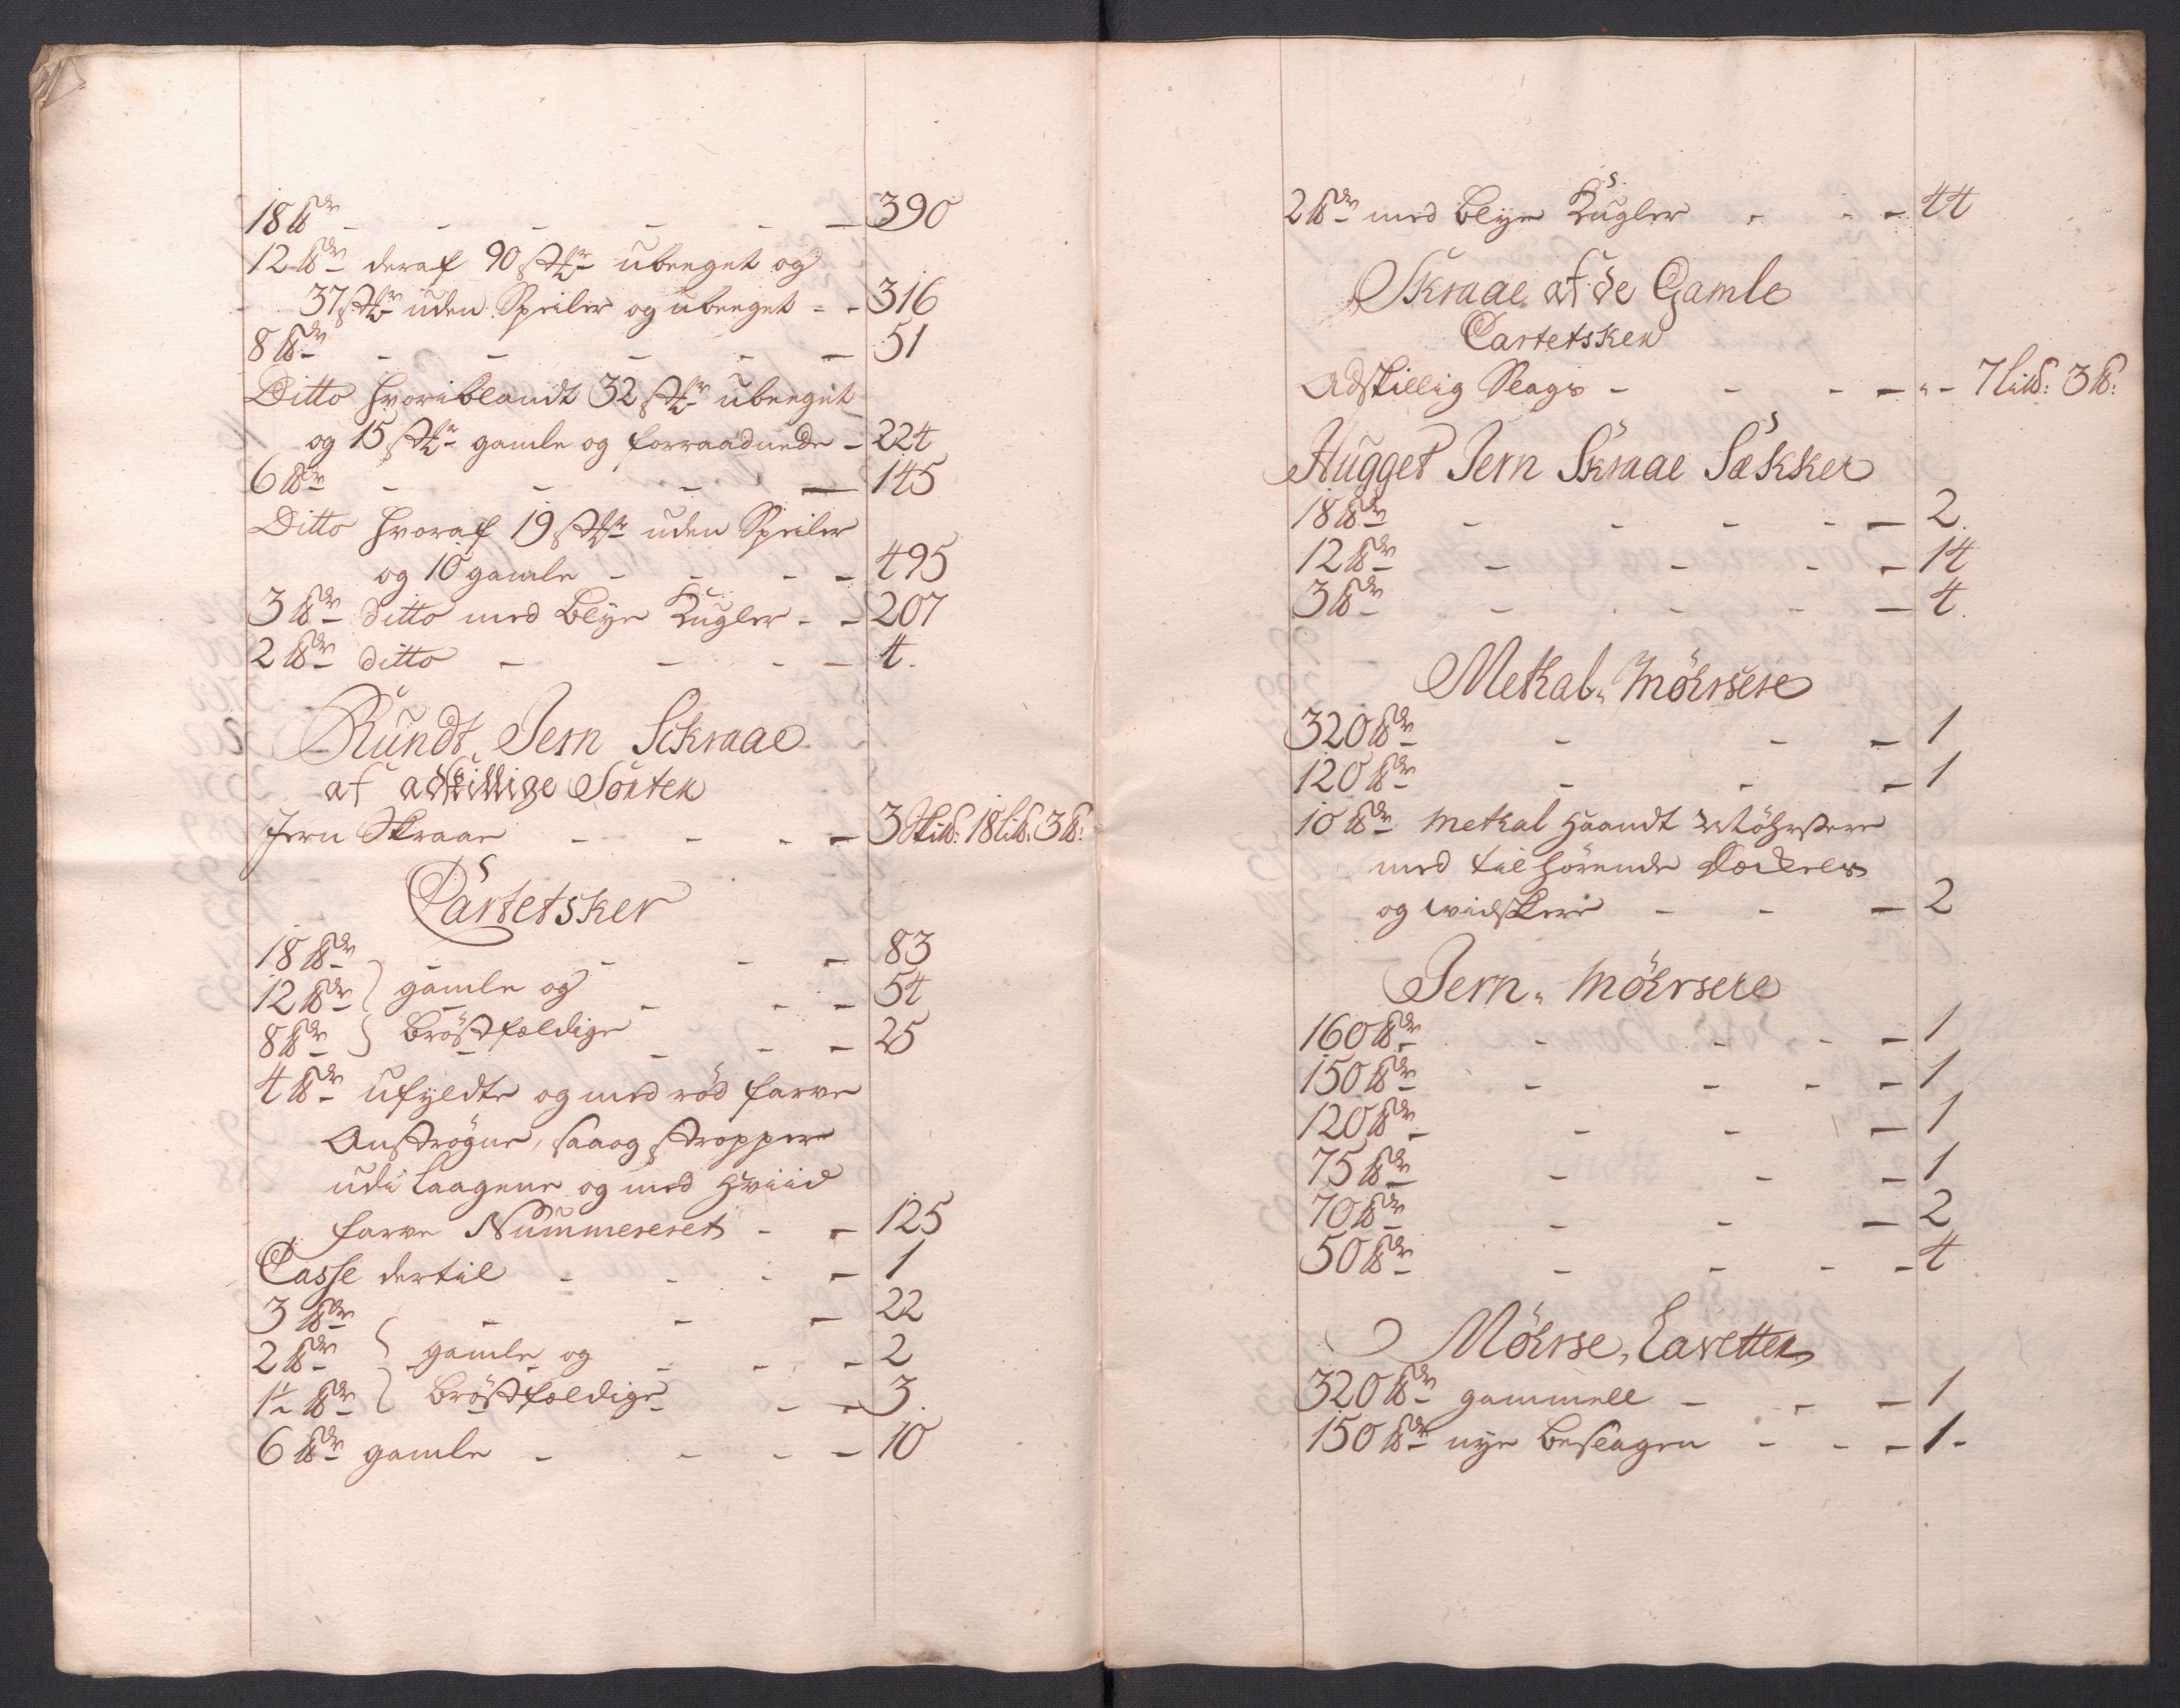 18 ℔dr - - - - - 390
12 ℔dr deraf 90 stkr ubeeget og
37 stkr uden Speiler og ubeeget - - 316
8 ℔dr - - - - - 51
Ditto hvoriblandt 32 stkr ubeeget
og 15 stkr gamle og forraadnede - 224
6 ℔dr - - - - 145
Ditto hvoraf 19 stkr uden Speiler
og 10 gamle - - - - 495
3 ℔dr ditto med Blye Kugler - - 207
2 ℔dr ditto - - - - 4.
Rundt Jern Schraae
af adskillige Sorter
Jern Skraae - - - - 3 Skil℔: 18 Lis℔: 3 ℔:
Cartetsker
18 ℔dr - - - - 83
12 ℔dr } gamle og - - - 54
8 ℔dr } Bröstfeldige - - - 25
4 ℔dr ufyldte og med röd farve
Anströgne, saa og stropper
udi laagene og med Hviid
farve Nummereret - - 125
Casse dertil - - - - 1
3 ℔dr - - - 22
2 ℔dr } gamle og - - - 2
1½ ℔dr } Bröstfeldige - - 3.
6 ℔dr gamle - - - - 10
2 ℔dr med Blye Kugler - - - 44
Skraae af de Gamle
Cartetsker
Adskillig Slags - - - - „ - 7 Lis℔: 3 ℔:
Hugget Jern Skraae Sækker
18 ℔dr - - - - - 2.
12 ℔dr - - - - 14
3 ℔dr - - - - 4.
Metal Möhrsere
320 ℔dr - - - 1
120 ℔dr - - - 1
10 ℔dr Metal Haandt Möhrsere
med tilhörende
og widskere - - - 2
Jern Möhrsere
160 ℔dr - - - - 1
150 ℔dr - - - - 1
120 ℔dr - - - 1
75 ℔dr - - - 1
70 ℔dr - - - 2
50 ℔dr - - - - 4
Möhrse Lavetter
320 ℔dr gammell - - - 1
150 ℔dr nye Beslagen - - - 1 -